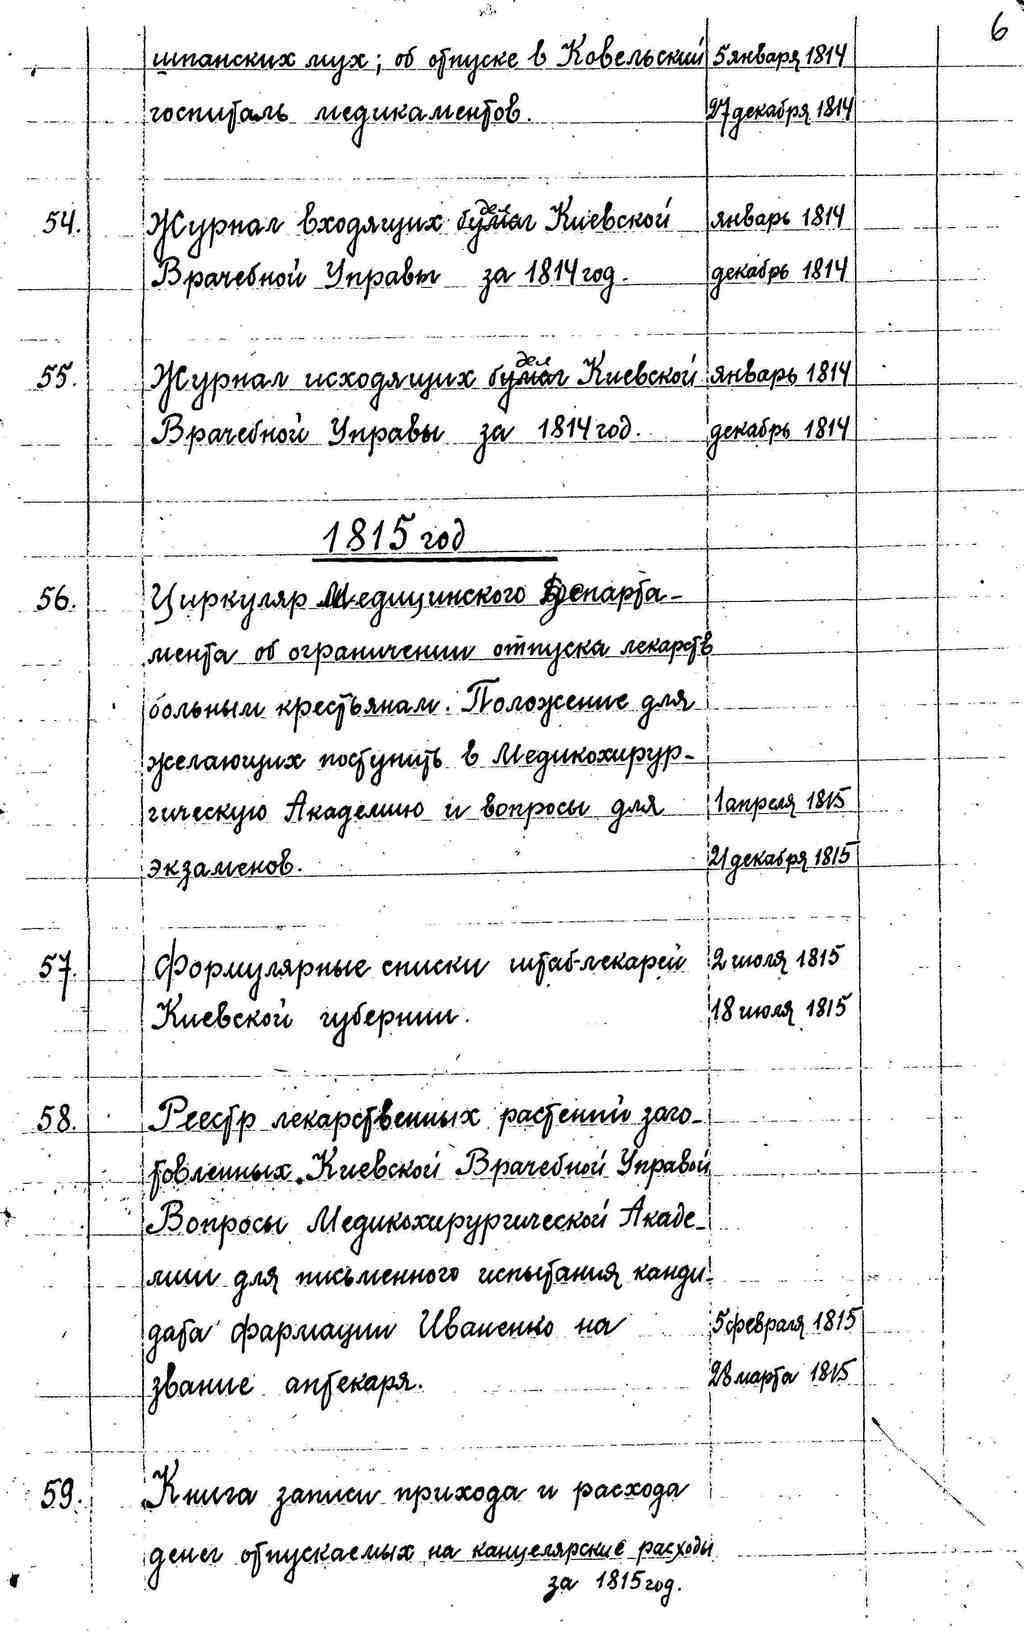 6
шпанских мух; об отпуске в Ковельский 5 января 1814
госпиталь медикаментов. 27 декабря 1814
54. Журнал входящих бумаг дел Киевской январь 1814
Врачебной Управы за 1814 год. декабрь 1814
55. Журнал исходящих бумаг дел Киевской январь 1814
Врачебной Управы за 1814 год. декабрь 1814
1815 год
56. Циркуляр Медицинского Департа-
мента об ограничении отпуска лекарств
больным крестьянам. Положение для
желающих поступить в Медикохирур-
гическую Академию и вопросы для 1 апреля 1815
экзаменов. 21 декабря 1815
57. Формулярные списки штаб-лекарей 2 июля 1815
Киевской губернии. 18 июля 1815
58. Реестр лекарственных растений заго-
товленных Киевской Врачебной Управой
Вопросы Медикохирургической Акаде-
мии для письменного испытания канди-
дата фармации Иваненко на 5 февраля 1815
звание аптекаря. 28 марта 1815
59. Книга записи прихода и расхода
денег отпускаемых на канцелярские расходы
за 1815 год.